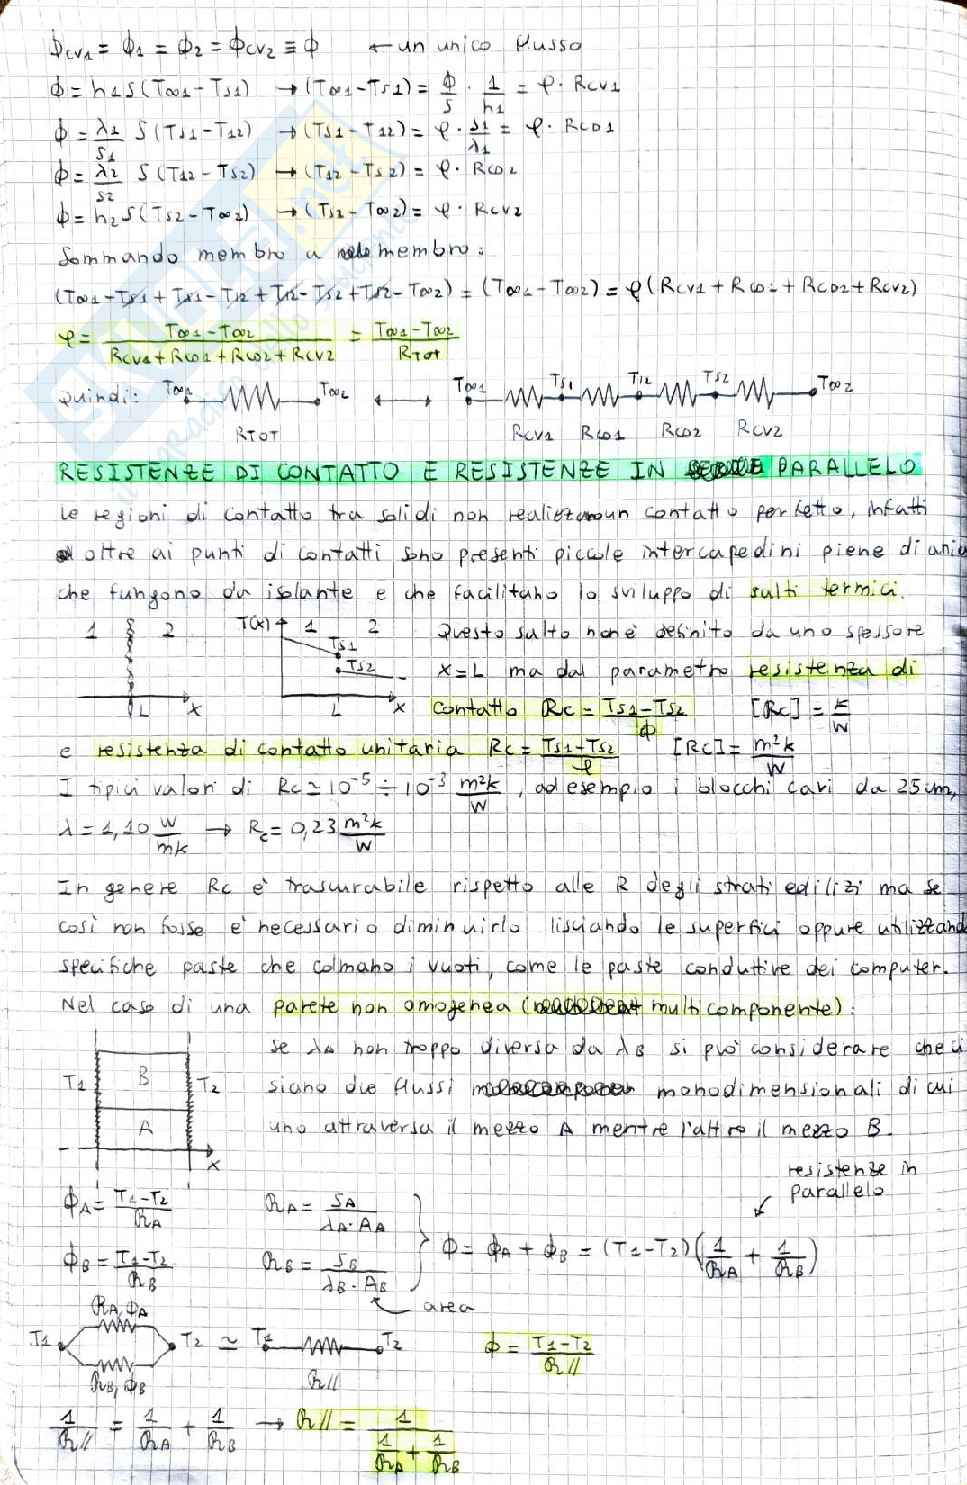 ϕcv1 = ϕ1 = ϕ2 = ϕcv2 ≡ ϕ ← un unico flusso
ϕ = h1 S (T∞1 - Ts1) → (T∞1 - Ts1) = ϕ/S · 1/h1 = φ · Rcv1
ϕ = λ1/s1 S (Ts1 - T12) → (Ts1 - T12) = φ · s1/λ1 = φ · Rcd1
ϕ = λ2/s2 S (T12 - Ts2) → (T12 - Ts2) = φ · Rcd2
ϕ = h2 S (Ts2 - T∞2) → (Ts2 - T∞2) = φ · Rcv2
Sommando membro a membro:
(T∞1 - Ts1 + Ts1 - T12 + T12 - Ts2 + Ts2 - T∞2) = (T∞1 - T∞2) = φ (Rcv1 + Rcd1 + Rcd2 + Rcv2)
φ = T∞1 - T∞2 / Rcv1 + Rcd1 + Rcd2 + Rcv2 = T∞1 - T∞2 / RTOT
Quindi: T∞1 T∞2 ↔ T∞1 Ts1 T12 Ts2 T∞2
RTOT Rcv1 Rcd1 Rcd2 Rcv2
RESISTENZE DI CONTATTO E RESISTENZE IN PARALLELO
Le regioni di contatto tra solidi non realizzano un contatto perfetto, infatti
oltre ai punti di contatti sono presenti piccole intercapedini piene di aria
che fungono da isolante e che facilitano lo sviluppo di salti termici.
1 2 T(x) 1 2 Ts1 Ts2 L x L x
Questo salto non è definito da uno spessore
x=L ma dal parametro resistenza di
contatto Rc = Ts1 - Ts2 / ϕ [Rc] = K/W
e resistenza di contatto unitaria Rc = Ts1 - Ts2 / φ [Rc] = m²K/W
I tipici valori di Rc ≃ 10⁻⁵ ÷ 10⁻³ m²K/W, ad esempio i blocchi cavi da 25 cm,
λ = 1,10 W/mK → Rc = 0,23 m²K/W
In genere Rc è trascurabile rispetto alle R degli strati edilizi ma se
così non fosse è necessario diminuirlo lisciando le superfici oppure utilizzand
specifiche paste che colmano i vuoti, come le paste conduttive dei computer.
Nel caso di una parete non omogenea (multicomponente):
se λA non troppo diversa da λB si può considerare che ci
siano due flussi monodimensionali di cui
uno attraversa il mezzo A mentre l'altro il mezzo B.
T1 B T2
A
x
resistenze in
parallelo
ϕA = T1 - T2 / RA RA = sA / λA · AA
ϕB = T1 - T2 / RB RB = sB / λB · AB
ϕ = ϕA + ϕB = (T1 - T2) (1/RA + 1/RB)
area
RA, ϕA
T1 T2 ≃ T1 T2 ϕ = T1 - T2 / R//
RB, ϕB R//
1/R// = 1/RA + 1/RB → R// = 1 / (1/RA + 1/RB)